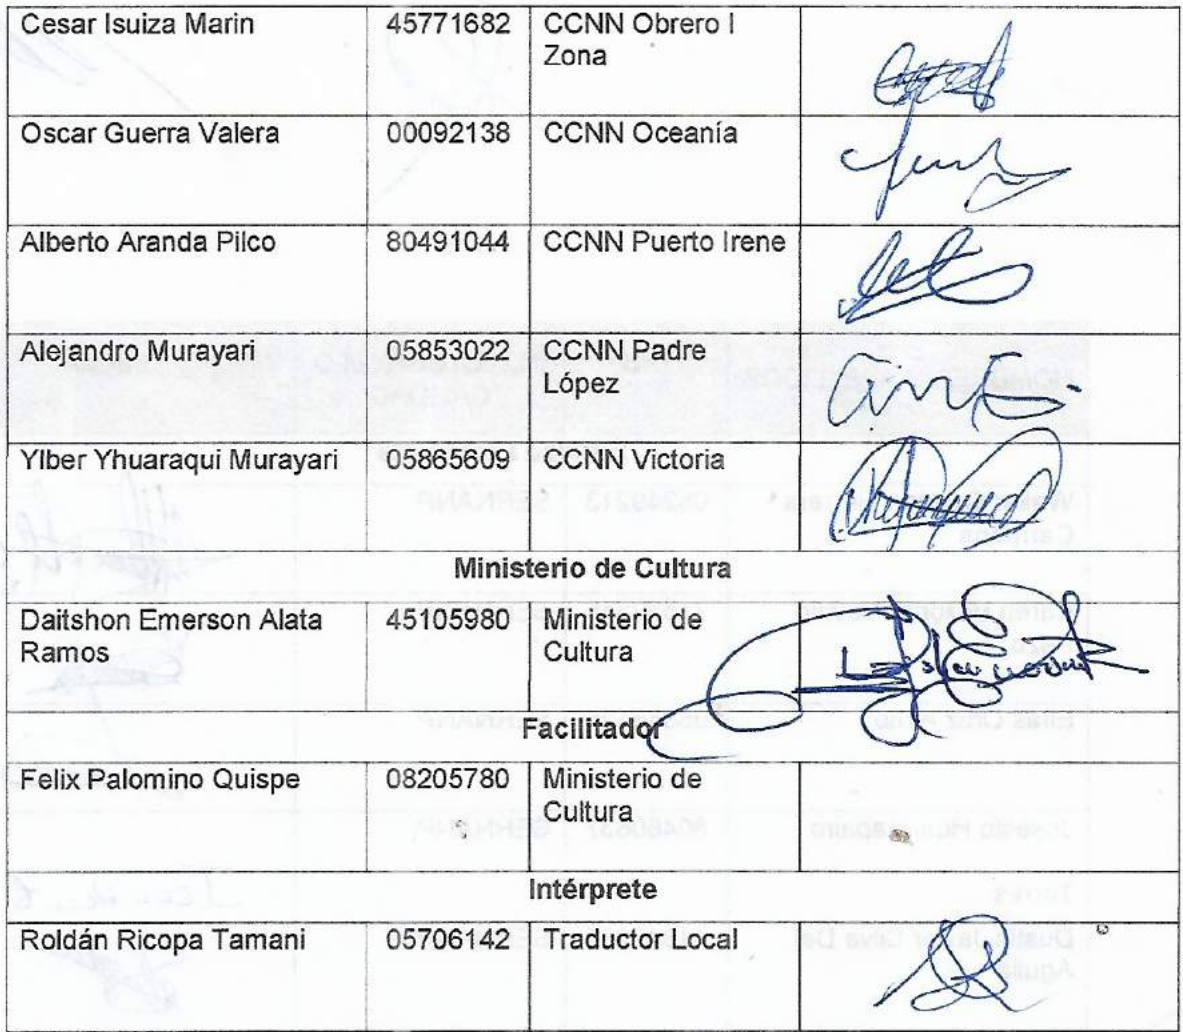 Cesar Isuiza Marin 45771682 CCNN Obrero I
Zona
Oscar Guerra Valera 00092138 CCNN Oceanía
Alberto Aranda Pilco 80491044 CCNN Puerto Irene
Alejandro Murayari 05853022 CCNN Padre
López
Ylber Yhuaraqui Murayari 05865609 CCNN Victoria
Ministerio de Cultura
Daitshon Emerson Alata 45105980 Ministerio de
Ramos Cultura
Facilitador
Felix Palomino Quispe 08205780 Ministerio de
Cultura
Intérprete
Roldán Ricopa Tamani 05706142 Traductor Local